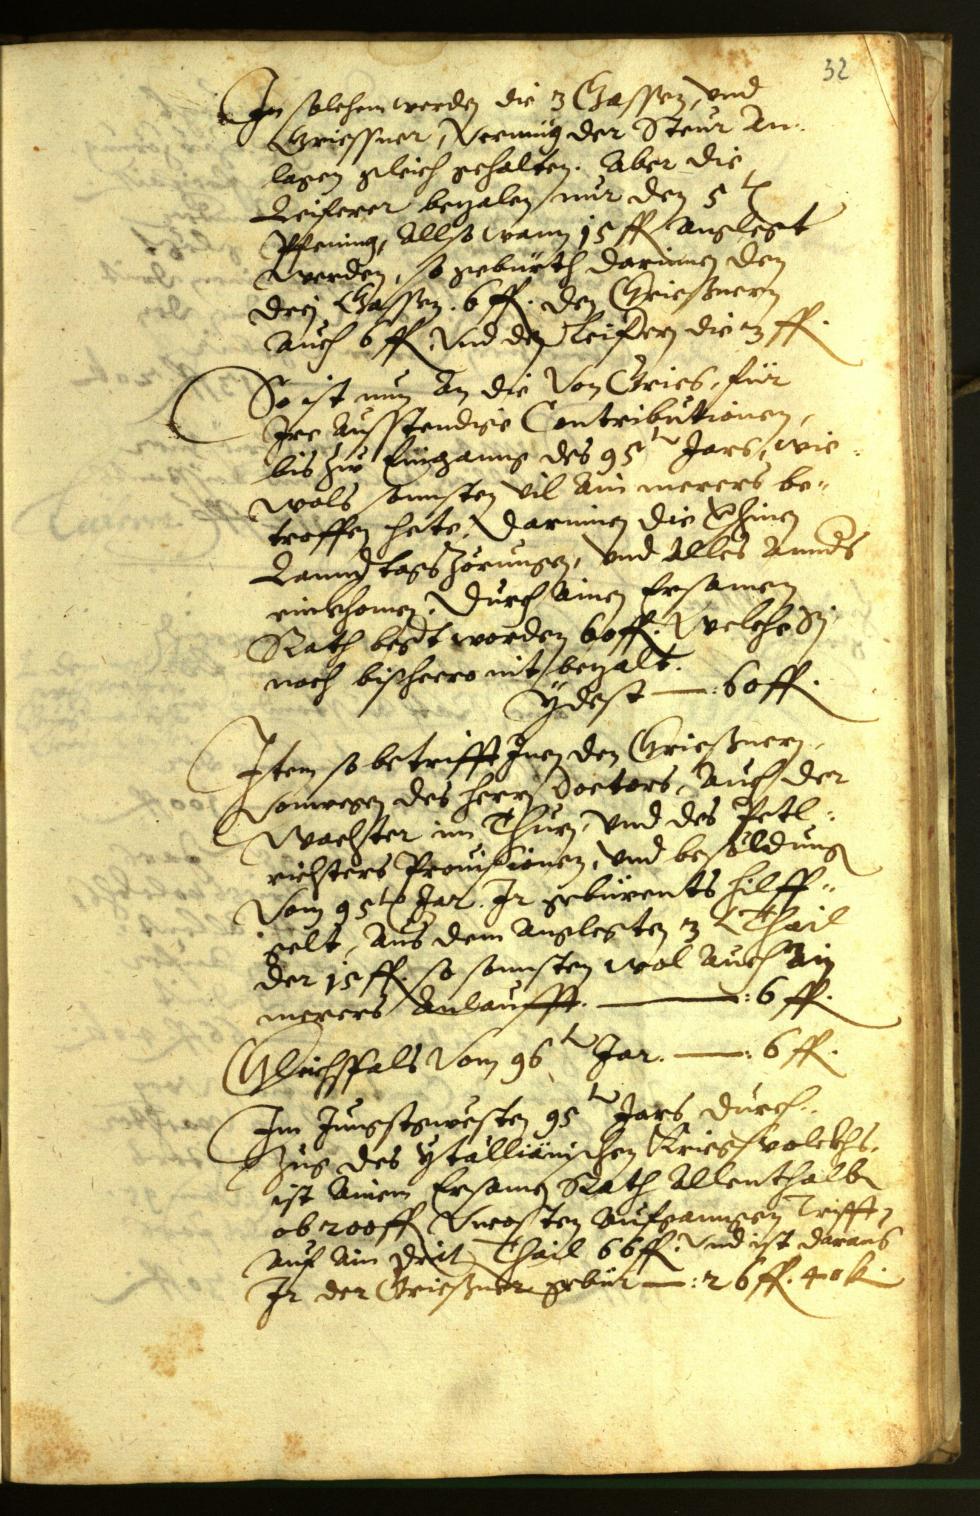 32
In solchem werden die 3 Gassen, vnd
Griessner, vermüg der Steur An-
lagen gleich gehalten. Aber die
Leiferer bezalen nur den 5 t
Pfening, Allso wann 15 fl angelegt
werden, so gebürth darinnen den
drej Gassen. 6 fl. den Griessnern
auch 6 fl. vnd den Leifern die 3 fl.
So ist nun an die von Gries, für
Ire Ausstendige Contributionen,
bis zu Einganng des 95 t Jars, wie-
wols sonnsten vil ain merers be-
troffen hete, darinnen die
Lanndtags Zörungen, vnd alles annders
einkhomen, durch ainen Ersamen
Rath worden 60 fl. welche Sy
noch bischeero nit bezalt.
Ydest —: 60 fl.
Item so betrifft Inen den Griessnern,
vonwegen des herrn Doctors, Auch der
Wachter im Thurn, vnd des Petl-
richters Prouisionen, vnd besoldung
Vom 95 t Jar. Ir gebürents hilff-
gelt, Aus dem angelegten 3 t Thail
der 15 fl. so sonnsten wol auch ain
merers anlaufft. —: 6 fl.
Gleichsfals vom 96 t Jar. —: 6 fl.
Im Jungstgewesten 95 t Jars durch-
Zug des Ytalliänischen Kriegsvolckhs,
ist ainem Ersamen Rath allenthalben
ob 200 fl Vncosten aufganngen Trifft
auf ain drit Thail 66 fl. Vnd ist daraus
Ir der Griessner gebür —: 26 fl. 40 k.